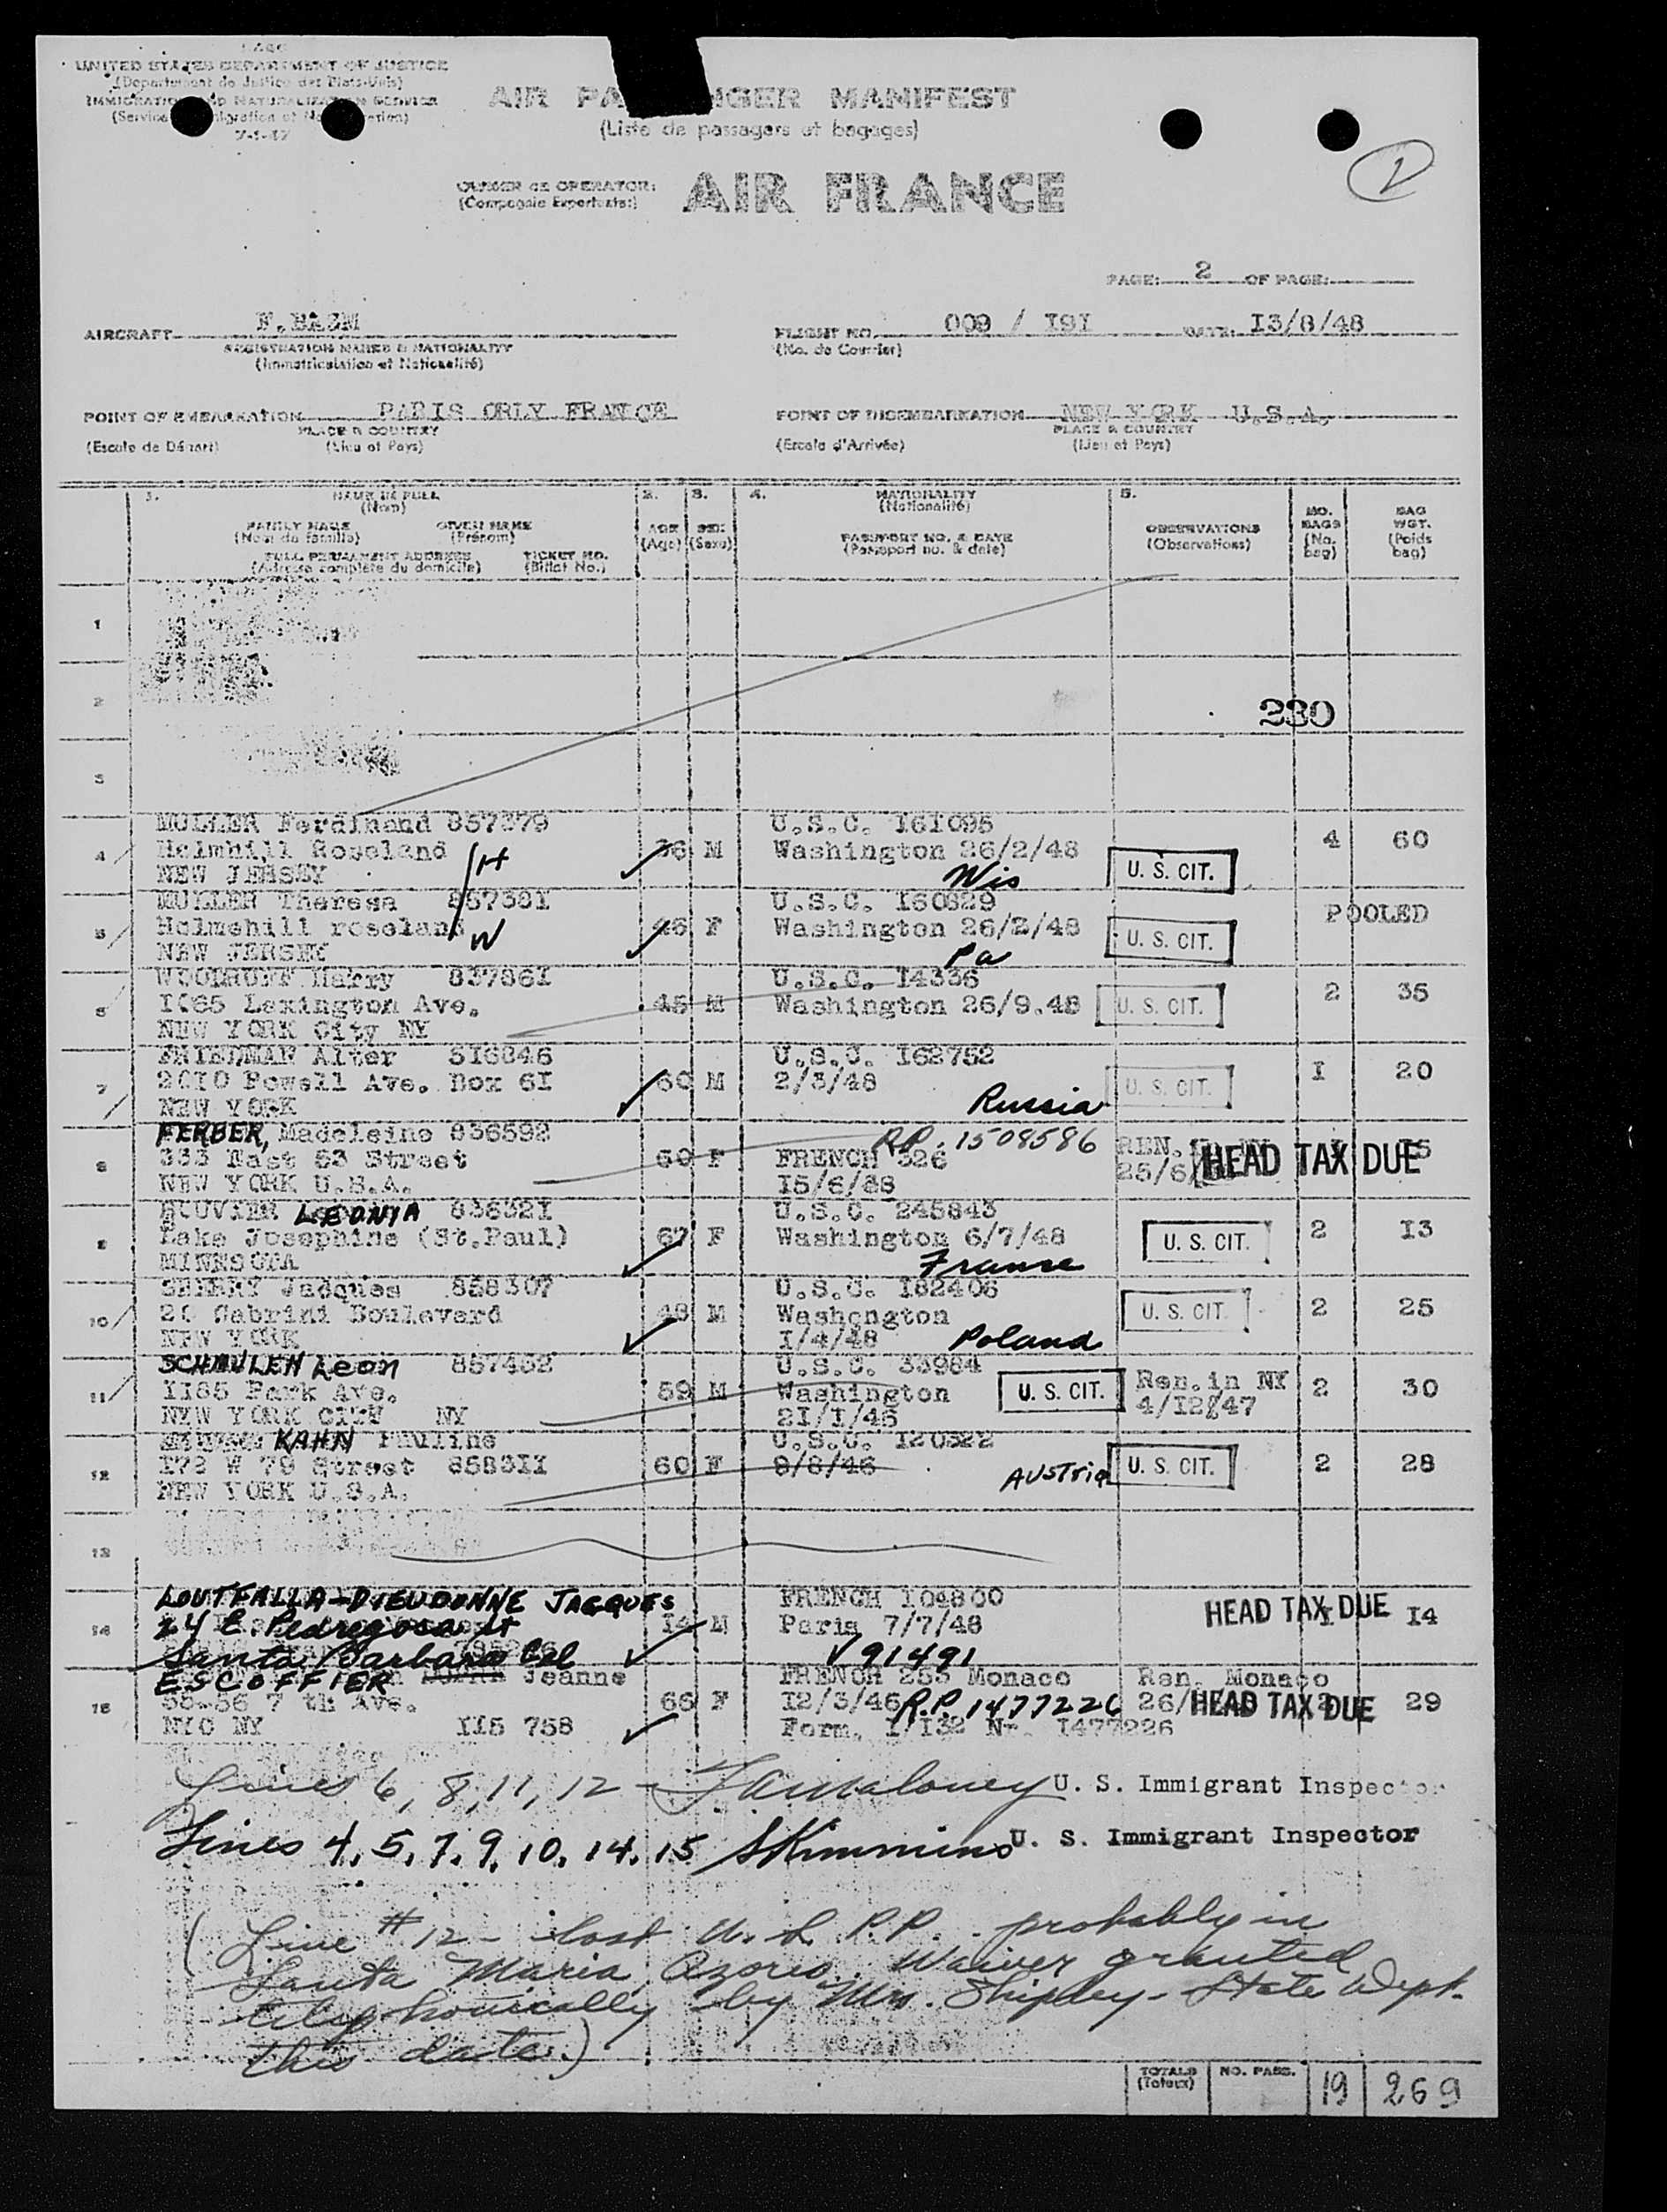 UNITED STATES DEPARTMENT OF JUSTICE
(Departement de Justice des Etats-Unis)
IMMIGRATION AND NATURALIZATION SERVICE
7-1-47
AIR PA NGER MANIFEST
(Liste de passagers et bagages)
OWNER OR OPERATOR: AIR FRANCE
PAGE: 2 OF PAGE:
AIRCRAFT F.BAZM
REGISTRATION MARKS & NATIONALITY
(Immatriculation et Nationalité)
FLIGHT NO. 009 / I9I DATE: I3/8/48
(No. de Courrier)
POINT OF EMBARKATION PARIS ORLY FRANCE
PLACE & COUNTRY
(Escale de Départ) (Lieu et Pays)
POINT OF DISEMBARKATION NEW YORK U.S.A.
PLACE & COUNTRY
(Escale d'Arrivée) (Lieu et Pays)
1. NAME IN FULL 2. 3. 4. NATIONALITY 5.
(Nom) (Nationalité)
FAMILY NAME GIVEN NAME AGE SEX PASSPORT NO. & DATE OBSERVATIONS NO. BAGS BAG WGT.
(Nom de famille) (Prénom) (Age) (Sexe) (Passport no. & date) (Observations) (No. bag) (Poids bag)
FULL PERMANENT ADDRESS TICKET NO.
(Adresse complète du domicile) (Billet No.)
1
2 230
3
MULLER Ferdinand 857379 U.S.C. I6I095
4 Holmhill Roseland H 36 M Washington 26/2/48 4 60
NEW JERSEY Wis U. S. CIT.
MULLER Theresa 857381 U.S.C. I60829 POOLED
5 Holmehill roseland W 46 F Washington 26/2/48 U. S. CIT.
NEW JERSEY Pa
WOODRUFF Harry 83786I U.S.C. I4336
6 I065 Lexington Ave. 45 M Washington 26/9.48 U. S. CIT. 2 35
NEW YORK City NY
FRIEDMAN Alter 5I6846 U.S.C. I62752
7 20I0 Powell Ave. Box 6I 60 M 2/3/48 U. S. CIT. I 20
NEW YORK Russia
FERBER, Madeleine 836592 RP. 1508586 REN.
8 333 East 53 Street 60 F FRENCH 326 25/6 HEAD TAX DUE
NEW YORK U.S.A. I5/6/38
BOUVIER LEONIA 83632I U.S.C. 245843
9 Lake Josephine (St.Paul) 67 F Washington 6/7/48 U. S. CIT. 2 I3
MINESOTA France
Jacques 858307 U.S.C. I82406
10 20 Cabrini Boulevard 48 M Washongton U. S. CIT. 2 25
NEW YORK I/4/48 Poland
SCHMULEN Leon 857452 U.S.C. 33984
11 II85 Park Ave. 59 M Washington U. S. CIT. Ren. in NY 2 30
NEW YORK CITY NY 2I/I/46 4/I2/47
KAHN Pauline U.S.C. I20322
12 I72 W 79 Street 8583II 60 F 9/8/46 Austria U. S. CIT. 2 28
NEW YORK U.S.A.
13
LOUTFALLA-DIEUDONNE JACQUES FRENCH I04800
14 24 E. Pedregosa St I4 M Paris 7/7/48 HEAD TAX DUE I4
Santa Barbara Cal V 91491
ESCOFFIER Jeanne FRENCH 253 Monaco Ren. Monaco
15 7 th Ave. 66 F I2/3/46 R.P. 1477226 26/ HEAD TAX DUE 29
NYC NY II5 758 Form. I/I32 Nr. I477226
Lines 6, 8, 11, 12 - Maloney U. S. Immigrant Inspector
Lines 4, 5, 7, 9, 10, 14, 15 SKimmins U. S. Immigrant Inspector
( Line # 12 - lost U.S. P.P. probably in
Santa Maria, Azores. Waiver granted
telephonically by Mrs. Shipley - State Dept.
this date.)
TOTALS NO. PASS. 19 269
(Totaux)